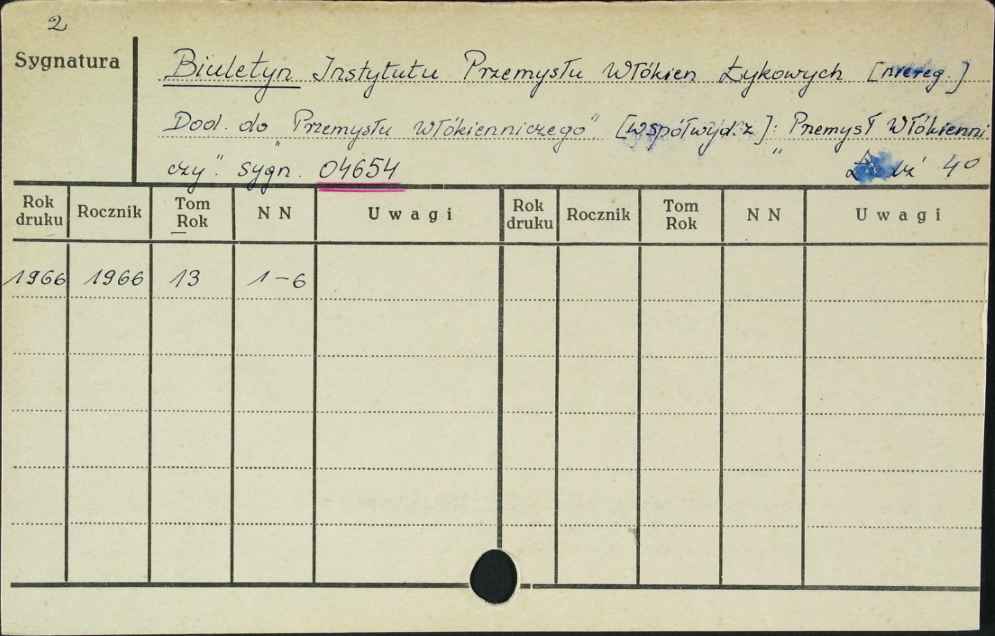 2
Sygnatura
Biuletyn Instytutu Przemysłu Włókien Łykowych [niereg.]
Dod. do "Przemysłu Włókienniczego" [współwyd. z]: "Przemysł Włókienni
czy". sygn. 04654 Łódź 4º
Rok druku Rocznik Tom Rok N N Uwagi Rok druku Rocznik Tom Rok N N Uwagi
1966 1966 13 1-6